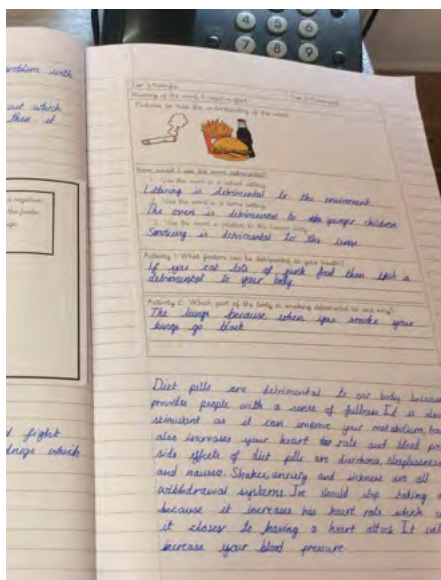 4 5 6
7 8 9
problem with
out which
then it
a negative
Meaning of the word: A negative effect
Pictures to help the understanding of the word
How could I use the word detrimental?
1. Use the word in a school setting
Littering is detrimental to the enviroment
2. Use the word in a home setting
The oven is detrimental to younger children
3. Use the word in relation to the human body
Smoking is detrimental to the lungs
Activity 1: What factors can be detrimental to your health?
If you eat lots of junk food then that a
detrimental to your body
Activity 2: Which part of the body is smoking detrimental to and why?
The lungs because when you smoke your
lungs go black
Diet pills are detrimental to our body because
provides people with a sense of fullness. It is also
stimulant as it can improve your metabolism, how
also increases your heart rate and blood pre
side effects of diet pills are diarrhoea, sleeplessness
and nausea. Shakes, anxiety and sickness are all
withdrawal systems. Joe should stop taking
because it increases his heart rate which
it closer to having a heart attack. It wil
increase your blood pressure
d fight
drugs which